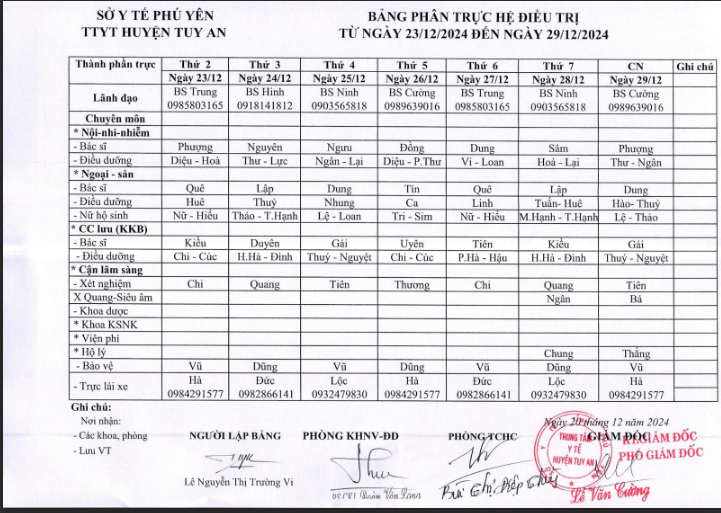 SỞ Y TẾ PHÚ YÊN
TTYT HUYỆN TUY AN
BẢNG PHÂN TRỰC HỆ ĐIỀU TRỊ
TỪ NGÀY 23/12/2024 ĐẾN NGÀY 29/12/2024
Thành phần trực Thứ 2 Thứ 3 Thứ 4 Thứ 5 Thứ 6 Thứ 7 CN Ghi chú
Ngày 23/12 Ngày 24/12 Ngày 25/12 Ngày 26/12 Ngày 27/12 Ngày 28/12 Ngày 29/12
Lãnh đạo BS Trung BS Hinh BS Ninh BS Cường BS Trung BS Ninh BS Cường
0985803165 0918141812 0903565818 0989639016 0985803165 0903565818 0989639016
Chuyên môn
* Nội-nhi-nhiễm
- Bác sĩ Phượng Nguyên Ngưu Đồng Dung Sâm Phượng
- Điều dưỡng Diệu - Hoà Thư - Lực Ngân - Lại Diệu - P.Thư Vi - Loan Hoà - Lại Thư - Ngân
* Ngoại - sản
- Bác sĩ Quê Lập Dung Tin Quê Lập Dung
- Điều dưỡng Huê Thuỷ Nhung Ca Linh Tuấn- Huê Hào- Thuỷ
- Nữ hộ sinh Nữ - Hiếu Thảo - T.Hạnh Lệ - Loan Tri - Sim Nữ - Hiếu M.Hạnh - T.Hạnh Lệ - Thảo
* CC lưu (KKB)
- Bác sĩ Kiều Duyên Gái Uyên Tiên Kiều Gái
- Điều dưỡng Chi - Cúc H.Hà - Đinh Thuý - Nguyệt Chi - Cúc P.Hà - Hậu H.Hà - Đinh Thuý - Nguyệt
* Cận lâm sàng
- Xét nghiệm Chi Quang Tiên Thương Chi Quang Tiên
X Quang-Siêu âm Ngân Bá
- Khoa dược
* Khoa KSNK
* Viện phí
* Hộ lý Chung Thắng
- Bảo vệ Vũ Dũng Vũ Dũng Vũ Dũng Vũ
- Trực lái xe Hà Đức Lộc Hà Đức Lộc Hà
0984291577 0982866141 0932479830 0984291577 0982866141 0932479830 0984291577
Ghi chú:
Nơi nhận:
- Các khoa, phòng
- Lưu VT
Ngày 20 tháng 12 năm 2024
NGƯỜI LẬP BẢNG PHÒNG KHNV-ĐD PHÒNG TCHC GIÁM ĐỐC
GIÁM ĐỐC
PHÓ GIÁM ĐỐC
TRUNG TÂM
Y TẾ
HUYỆN TUY AN
Lê Nguyễn Thị Trường Vi
Lê Văn Cường